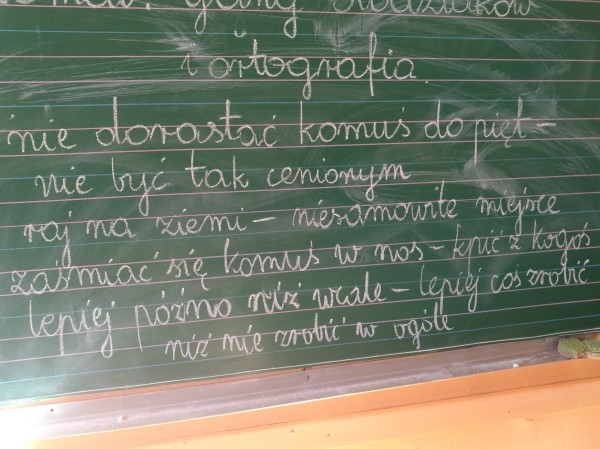 i ortografia.
nie dorastać komuś do pięt -
nie być tak cenionym
raj na ziemi - niesamowite miejsce
zaśmiać się komuś w nos - kpić z kogoś
lepiej późno niż wcale - lepiej coś zrobić
niż nie zrobić w ogóle